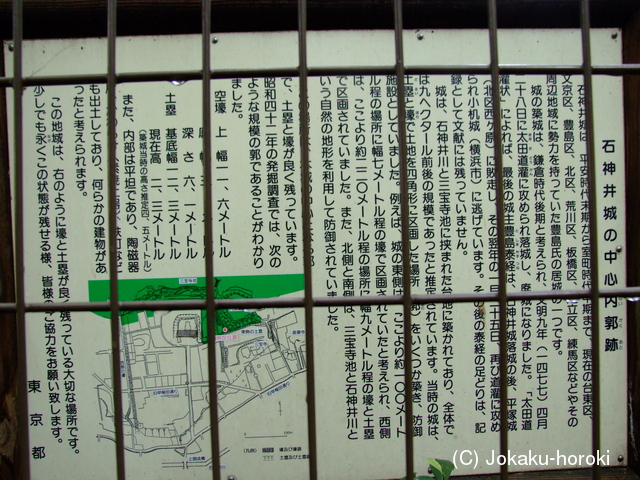 石神井城の中心内郭跡
石神井城は、平安時代末期から室町時代中期まで、現在の台東区、
文京区、豊島区、北区、荒川区、板橋区、足立区、練馬区などやその
周辺地域に勢力を持っていた豊島氏の居城の一つです。
城の築城は、鎌倉時代後期と考えられ、文明九年(一四七七)四月
二十八日に太田道灌に攻められ落城し、廃城になりました。「太田道
灌状」によれば、最後の城主豊島泰経は、石神井城落城の後、平塚城
(北区西ヶ原)に敗走し、その翌年の一月二十五日、再び道灌に攻め
られ小机城(横浜市)に逃げています。その後の泰経の足どりは、記
録として文献には残っていません。
城は、石神井川と三宝寺池に挟まれた台地に築かれており、全体で
は九ヘクタール前後の規模であったと推定されています。当時の城は、
土塁と壕で土地を四角形に区画した場所(郭)をいくつか築き、防御
施設としていました。例えば、城の東側は、ここより約一〇〇メート
ル程の場所に幅七メートル程の壕で区画されていたと考えられ、西側
は、ここより約二二〇メートル程の場所に幅九メートル程の壕と土塁
で区画されていました。また、北側と南側は、三宝寺池と石神井川と
いう自然の地形を利用して防御されていました。
で、土塁と壕が良く残っています。
昭和四十二年の発掘調査では、次の
ような規模の郭であることがわかり
ました。
空壕 上 幅一一、六メートル
深 さ 六、一メートル
土塁 基底幅一二、三メートル
現在高 二、三メートル
(築城当時の高さ推定四、五メートル)
また、内部は平坦であり、陶磁器
も出土しており、何らかの建物があ
ったと考えられます。
この地域は、右のように壕と土塁が良く残っている大切な場所です。
少しでも永くこの状態が残せる様、皆様もご協力をお願い致します。
東京都
三宝寺池
(凡例)
壕及び濠跡
土塁及び土塁跡
(C) Jokaku-horoki